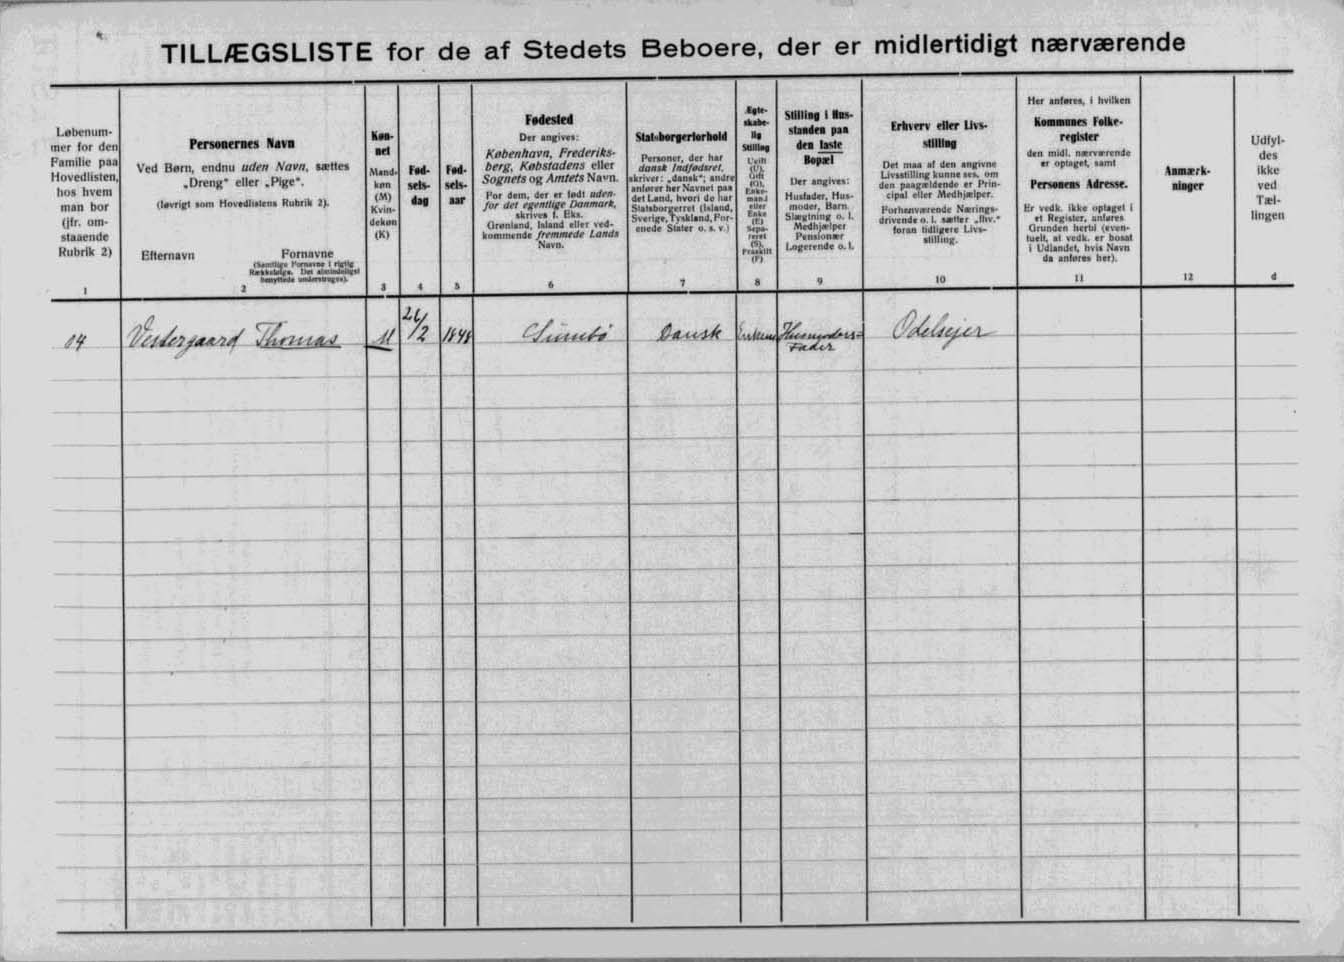 TILLÆGSLISTE for de af Stedets Beboere, der er midlertidigt nærværende
Løbenum-
mer for den
Familie paa
Hovedlisten,
hos hvem
man bor
(jfr. om-
staaende
Rubrik 2)
1
Personernes Navn
Ved Børn, endnu uden Navn, sættes
„Dreng“ eller „Pige“.
(Iøvrigt som Hovedlistens Rubrik 2).
Efternavn Fornavne
(Samtlige Fornavne i rigtig
Rækkefølge. Det almindeligst
benyttede understreges).
2
Køn-
net
Mand-
køn
(M)
Kvin-
dekøn
(K)
3
Fød-
sels-
dag
4
Fød-
sels-
aar
5
Fødested
Der angives:
København, Frederiks-
berg, Købstadens eller
Sognets og Amtets Navn.
For dem, der er født uden-
for det egentlige Danmark,
skrives f. Eks.
Grønland, Island eller ved-
kommende fremmede Lands
Navn.
6
Statsborgerforhold
Personer, der har
dansk Indfødsret,
skriver: „dansk“; andre
anfører her Navnet paa
det Land, hvori de har
Statsborgerret (Island,
Sverige, Tyskland, For-
enede Stater o. s. v.)
7
Ægte-
skabe-
lig
Stilling
Ugift
(U),
Gift
(G),
Enke-
mand
eller
Enke
(E)
Sepa-
reret
(S),
Fraskilt
(F)
8
Stilling i Hus-
standen paa
den faste
Bopæl
Der angives:
Husfader, Hus-
moder, Barn,
Slægtning o. l.
Medhjælper
Pensionær
Logerende o. l.
9
Erhverv eller Livs-
stilling
Det maa af den angivne
Livsstilling kunne ses, om
den paagældende er Prin-
cipal eller Medhjælper.
Forhenværende Nærings-
drivende o. l. sætter „fhv.“
foran tidligere Livs-
stilling.
10
Her anføres, i hvilken
Kommunes Folke-
register
den midl. nærværende
er optaget, samt
Personens Adresse.
Er vedk. ikke optaget i
et Register, anføres
Grunden hertil (even-
tuelt, at vedk. er bosat
i Udlandet, hvis Navn
da anføres her).
11
Anmærk-
ninger
12
Udfyl-
des
ikke
ved
Tæl-
lingen
d
04 Vestergaard Thomas M /2 1848 Sumbö Dansk
Fader Odelsejer